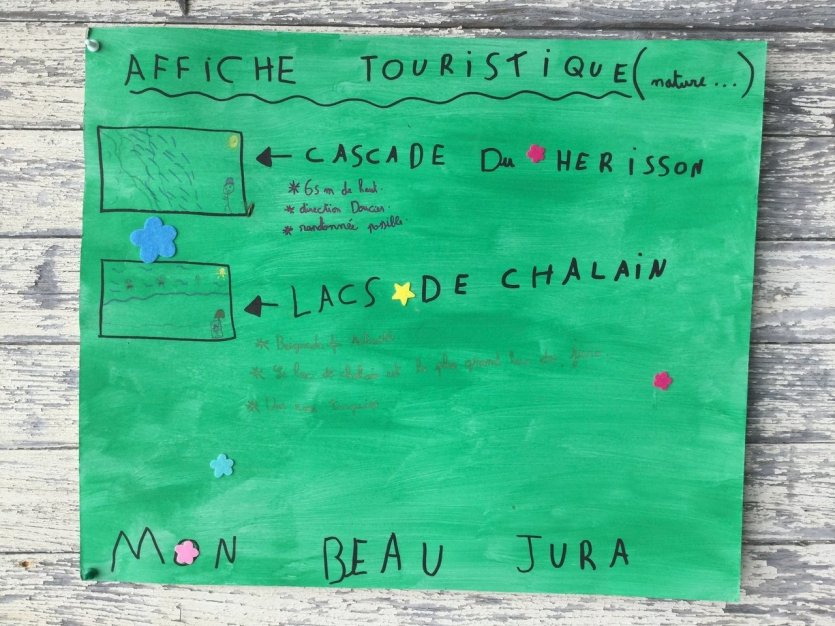 AFFiCHE TOURiSTiQUE (nature...)
CASCADE Du HERiSSON
* 65 m de haut
* direction Doucier
* randonnée possible
LACS DE CHALAiN
* Baignade
* Le lac de est le plus grand lac du Jura
* Un
MON BEAU JURA